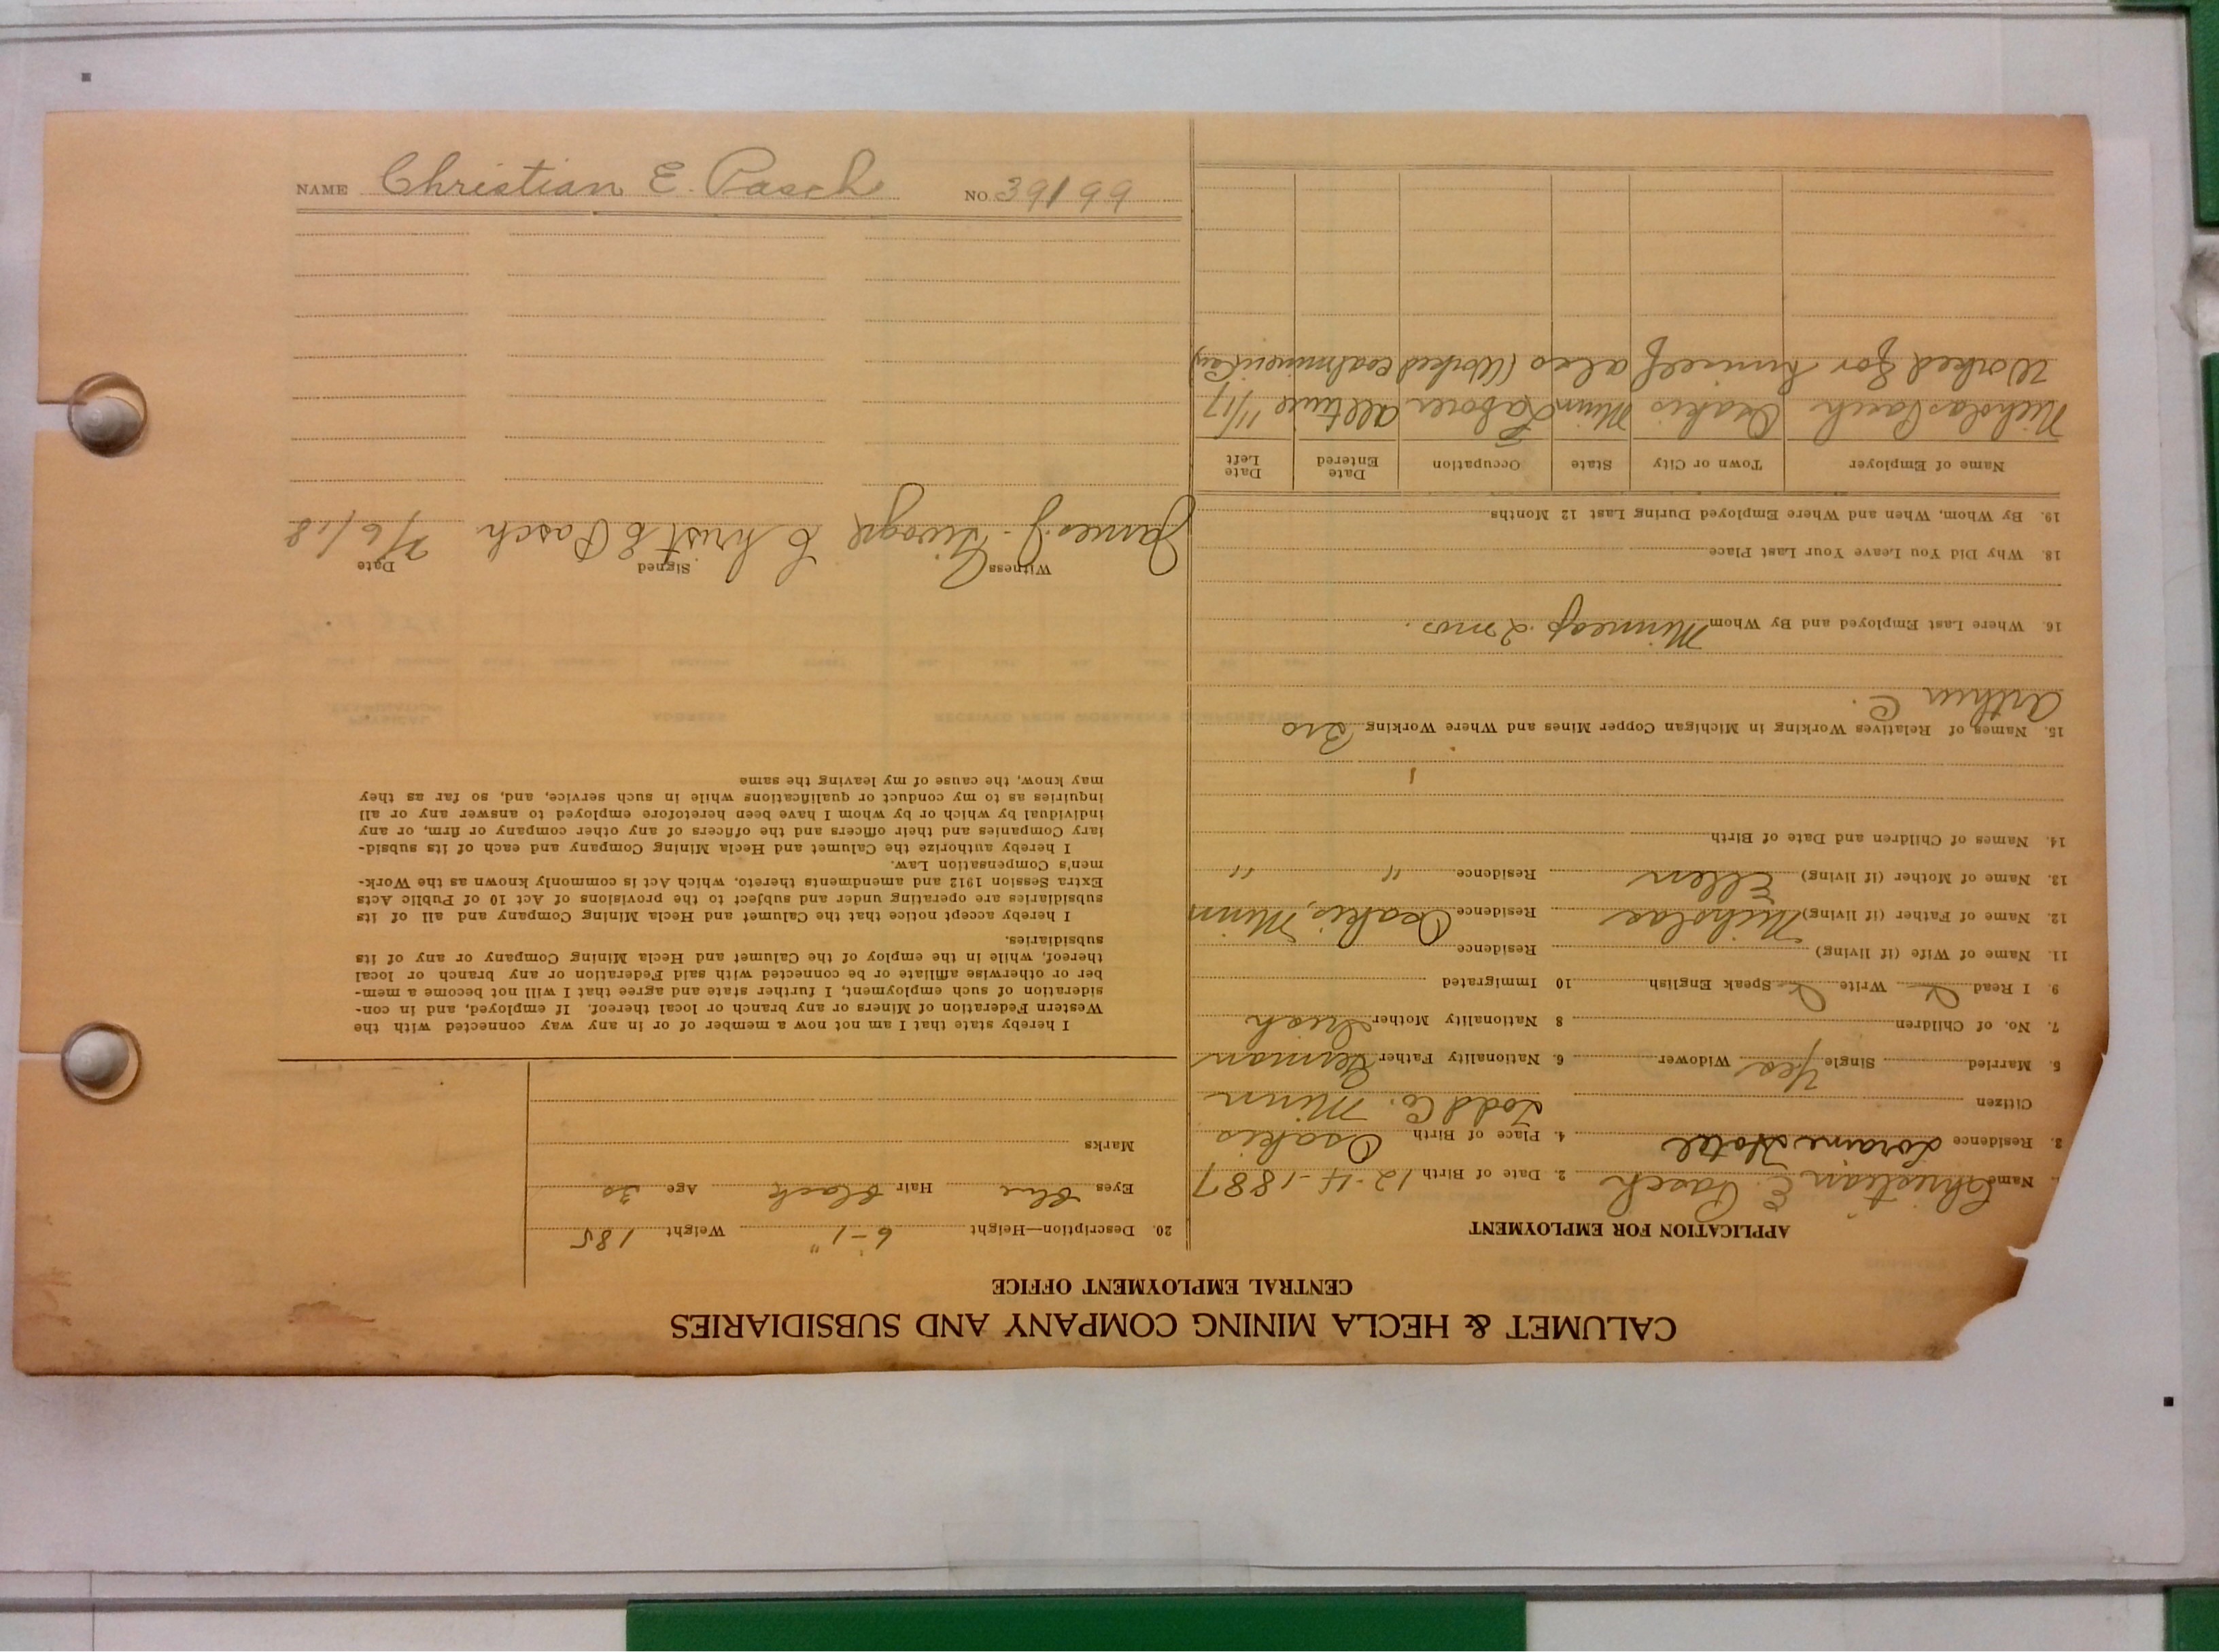 CALUMET & HECLA MINING COMPANY AND SUBSIDIARIES
CENTRAL EMPLOYMENT OFFICE
APPLICATION FOR EMPLOYMENT
Name Christian E. Pasch 2. Date of Birth 12-4-1887
3. Residence Loraine Hotel 4. Place of Birth Osakis
Citizen Todd Co. Minn
5. Married Single Yes Widower 6. Nationality Father German
7. No. of Children 8 Nationality Mother Irish
9. I Read Write Speak English 10 Immigrated
11. Name of Wife (if living) Residence
12. Name of Father (if living) Nicholas Residence Osakis, Minn
13. Name of Mother (if living) Ellen Residence " "
14. Names of Children and Date of Birth
15. Names of Relatives Working in Michigan Copper Mines and Where Working Bro
Arthur C.
16. Where Last Employed and By Whom Minneap. 2 mos.
18. Why Did You Leave Your Last Place
19. By Whom, When and Where Employed During Last 12 Months
Name of Employer Town or City State Occupation Date Entered Date Left
Nicholas Pasch Osakis Minn Laborer all time 11/17
Worked for himself also (Worked coal mine
20. Description—Height 6-1" Weight 185
Eyes Blue Hair Black Age 30
Marks
I hereby state that I am not now a member of or in any way connected with the
Western Federation of Miners or any branch or local thereof. If employed, and in con-
sideration of such employment, I further state and agree that I will not become a mem-
ber or otherwise affiliate or be connected with said Federation or any branch or local
thereof, while in the employ of the Calumet and Hecla Mining Company or any of its
subsidiaries.
I hereby accept notice that the Calumet and Hecla Mining Company and all of its
subsidiaries are operating under and subject to the provisions of Act 10 of Public Acts
Extra Session 1912 and amendments thereto, which Act is commonly known as the Work-
men's Compensation Law.
I hereby authorize the Calumet and Hecla Mining Company and each of its subsid-
iary Companies and their officers and the officers of any other company or firm, or any
individual by which or by whom I have been heretofore employed to answer any or all
inquiries as to my conduct or qualifications while in such service, and, so far as they
may know, the cause of my leaving the same
Witness Signed Date
James J. Christ E Pasch 2/6/18
NAME Christian E. Pasch NO. 39199